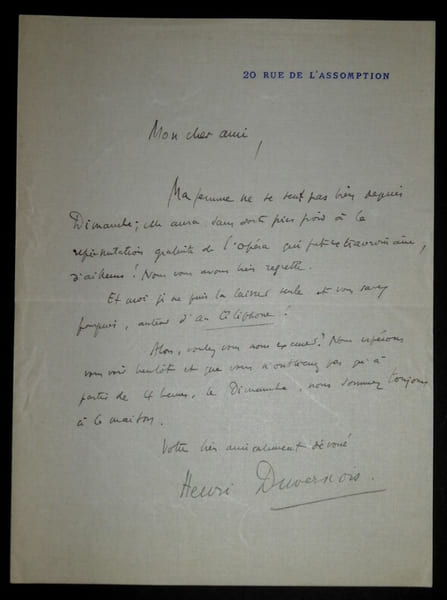 20 RUE DE L'ASSOMPTION
Mon cher ami,
Ma femme ne se sent pas bien depuis
Dimanche; elle aura sans doute pris froid à la
représentation gratuite de l'opéra qui fut extraordinaire,
d'ailleurs! Nous vous avons bien regretté.
Et moi je ne puis la laisser seule et vous savez
pourquoi, autour d'un téléphone!
Alors, voulez vous nous excuser? Nous espérons
vous voir bientôt et que vous n'oublierez pas qu'à
partir de 4 heures, le Dimanche, nous sommes toujours
à la maison.
Votre bien amicalement dévoué
Henri Duvernois.